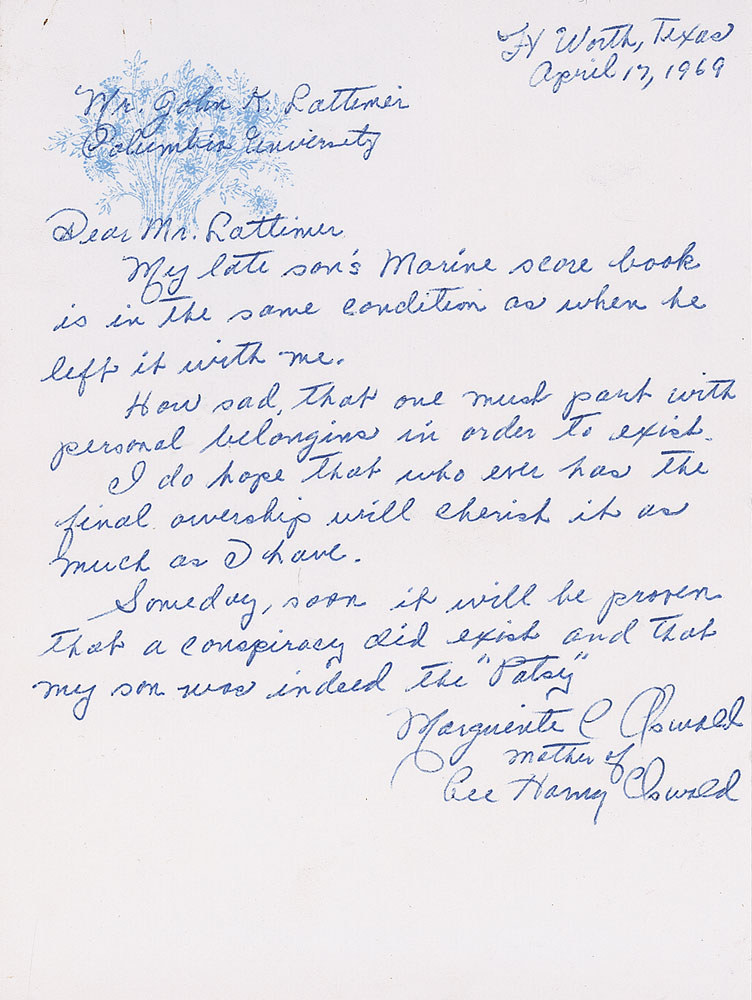 Ft Worth, Texas
April 17, 1969
Mr. John K. Lattimer
Columbia University
Dear Mr. Lattimer
My late son's Marine score book
is in the same condition as when he
left it with me.
How sad, that one must part with
personal belongins in order to exist.
I do hope that who ever has the
final owership will cherish it as
much as I have.
Someday, soon it will be proven
that a conspiracy did exist and that
my son was indeed the "Patsy"
Marguerite C Oswald
mother of
Lee Harvey Oswald